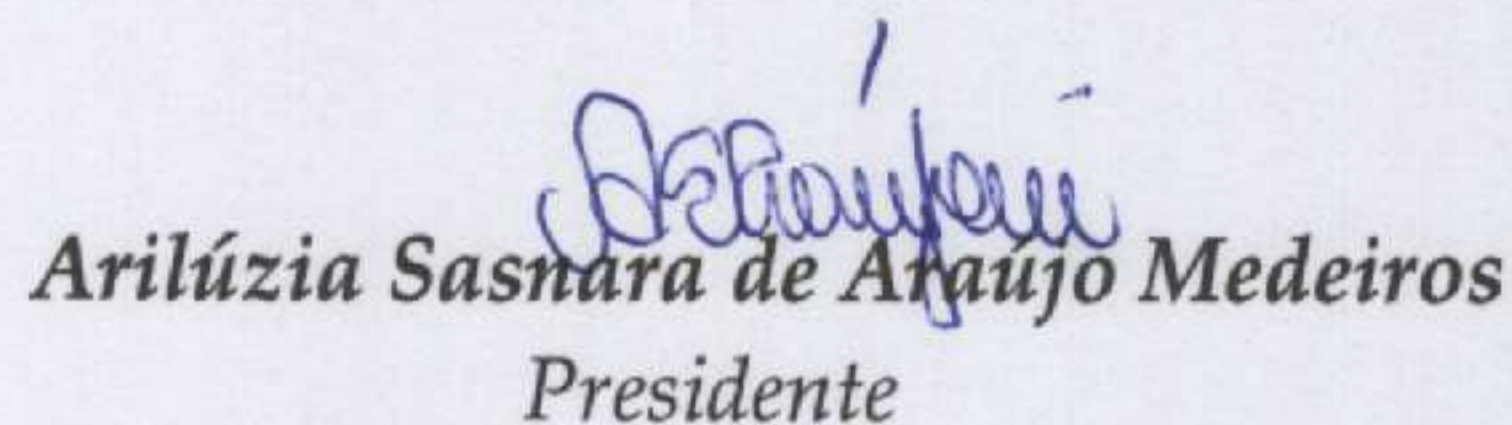 Arilúzia Sasnara de Araújo Medeiros
Presidente